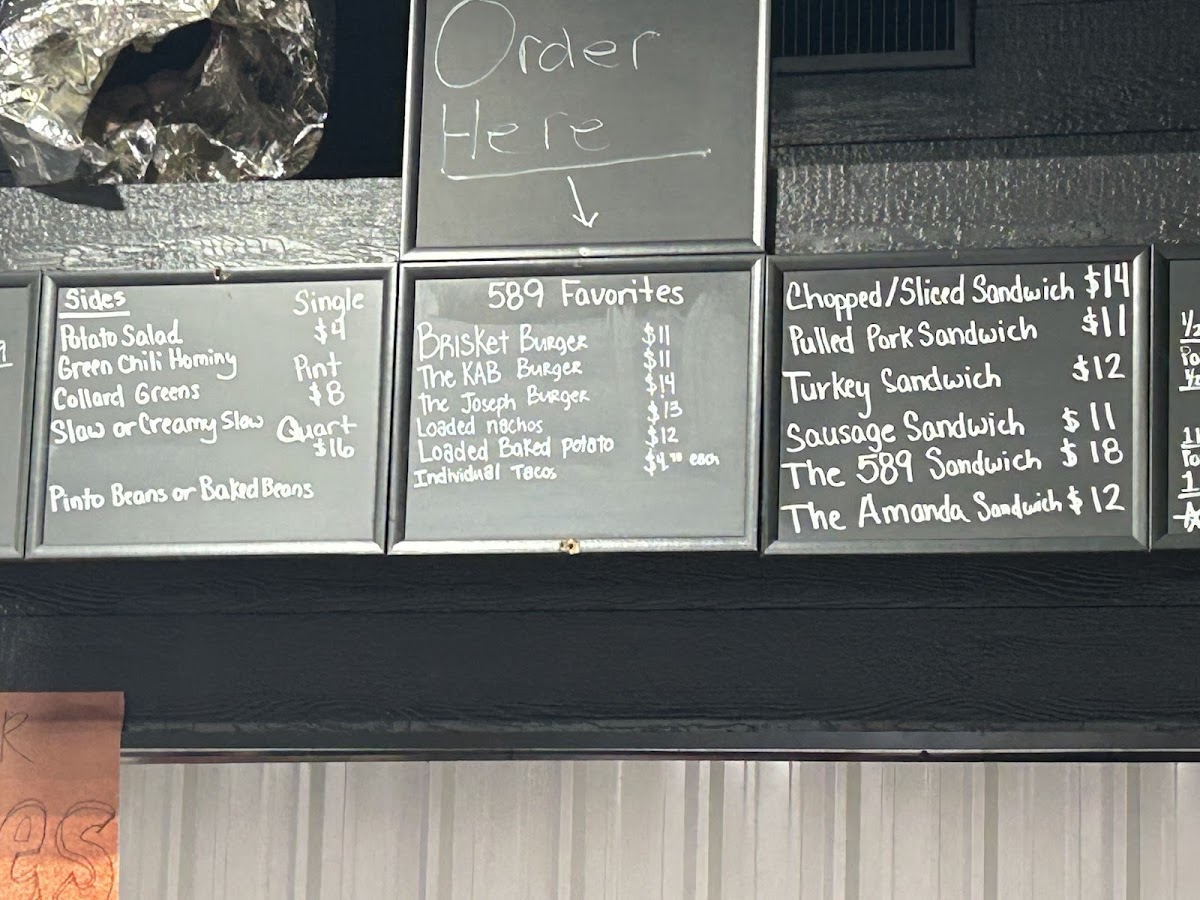 Order
Here
Sides Single
Potato Salad $4
Green Chili Hominy Pint
Collard Greens $8
Slaw or Creamy Slaw Quart
$16
Pinto Beans or Baked Beans
589 Favorites
Brisket Burger $11
The KAB Burger $11
The Joseph Burger $14
Loaded nachos $13
Loaded Baked Potato $12
Individual Tacos $4.70 each
Chopped/Sliced Sandwich $14
Pulled Pork Sandwich $11
Turkey Sandwich $12
Sausage Sandwich $11
The 589 Sandwich $18
The Amanda Sandwich $12